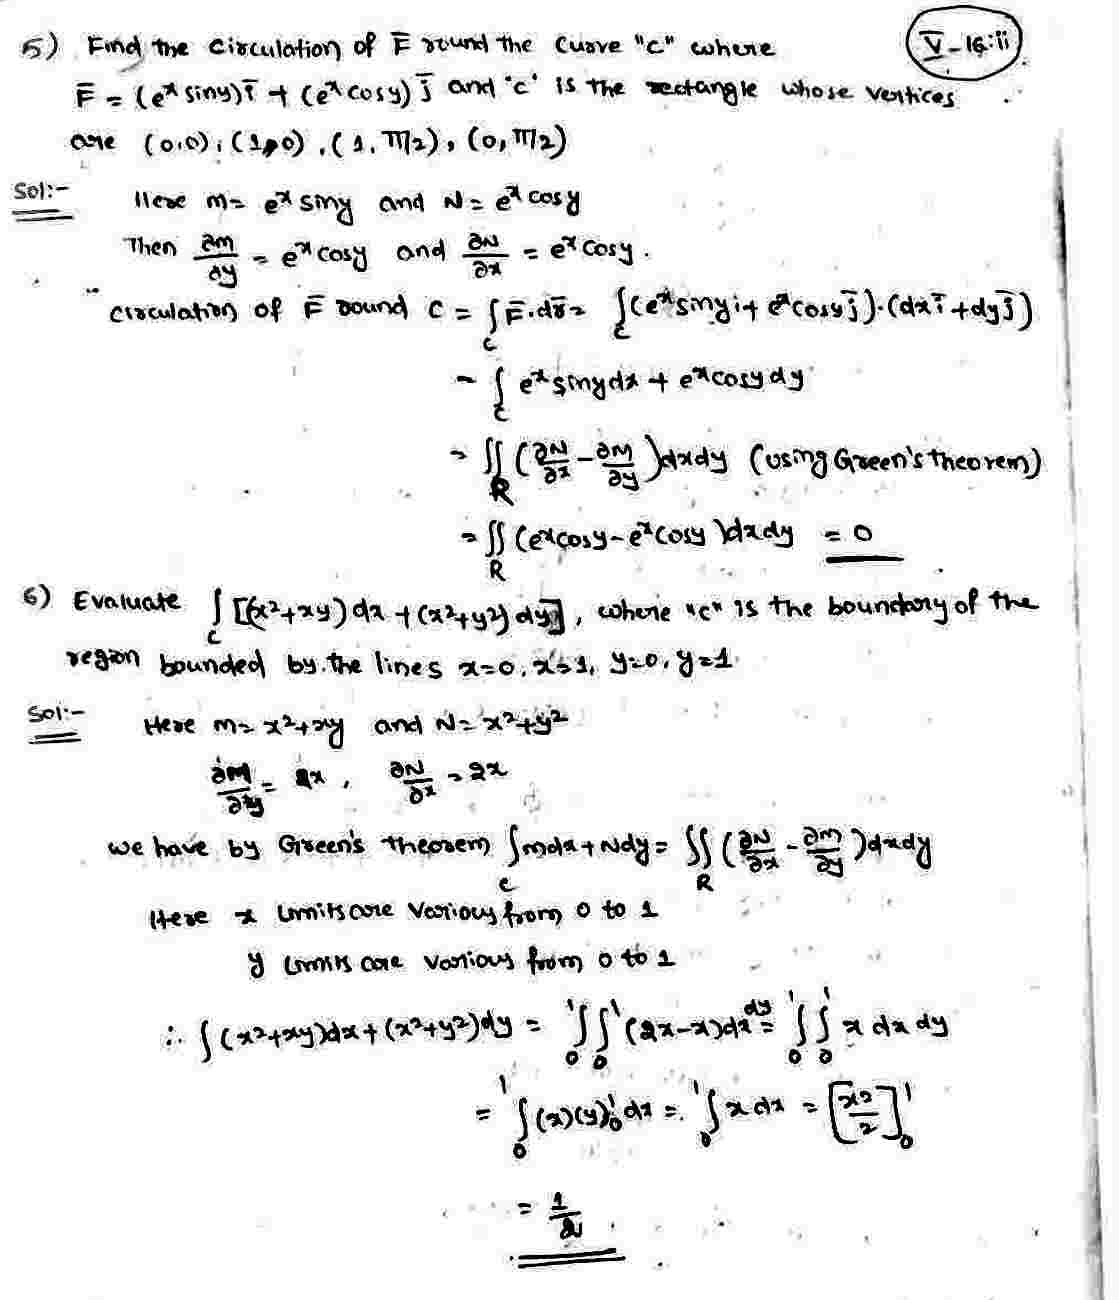 V-16:ii
5) Find the circulation of F̄ round the curve "c" where
F̄ = (eˣ siny)ī + (eˣ cosy) j̄ and 'c' is the rectangle whose vertices
are (0,0), (1,0), (1, π/2), (0, π/2)
Sol:- Here M = eˣ siny and N = eˣ cosy
Then ∂M/∂y = eˣ cosy and ∂N/∂x = eˣ cosy.
circulation of F̄ round C = ∫_C F̄.dr̄ = ∫_C (eˣ siny i + eˣ cosy j̄).(dx ī + dy j̄)
= ∫_C eˣ siny dx + eˣ cosy dy
= ∬_R (∂N/∂x - ∂M/∂y) dxdy (using Green's theorem)
= ∬_R (eˣ cosy - eˣ cosy) dxdy = 0
6) Evaluate ∫_C [(x²+xy) dx + (x²+y²) dy], where "c" is the boundary of the
region bounded by the lines x=0, x=1, y=0, y=1.
Sol:- Here M = x²+xy and N = x²+y²
∂M/∂y = x, ∂N/∂x = 2x
we have by Green's theorem ∫_C Mdx + Ndy = ∬_R (∂N/∂x - ∂M/∂y) dxdy
Here x limits are various from 0 to 1
y limits are various from 0 to 1
∴ ∫(x²+xy)dx + (x²+y²)dy = ∫₀¹∫₀¹ (2x-x)dx dy = ∫₀¹∫₀¹ x dx dy
= ∫₀¹ (x)(y)₀¹ dx = ∫₀¹ x dx = [x²/2]₀¹
= 1/2